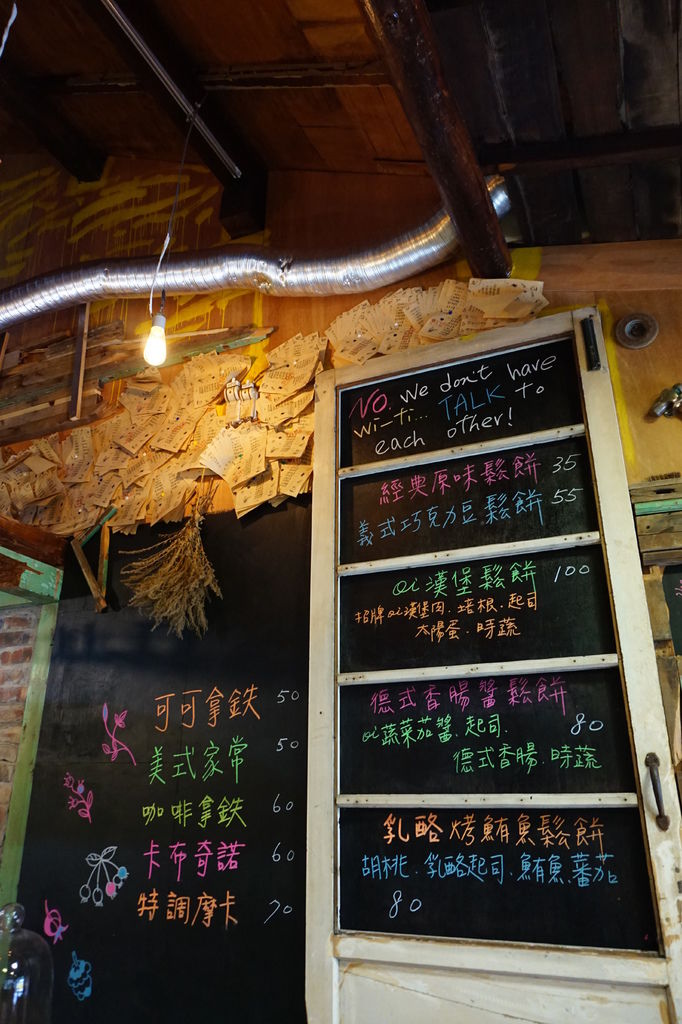 NO. we don't have
wi-ti... TALK to
each other!
經典原味鬆餅 35
義式巧克力豆鬆餅 55
oi漢堡鬆餅 100
招牌oi漢堡肉.培根.起司
太陽蛋.時蔬
德式香腸醬鬆餅
oi蔬菜茄醬.起司. 80
德式香腸.時蔬
乳酪烤鮪魚鬆餅
胡桃.乳酪起司.鮪魚.蕃茄
80
可可拿鉄 50
美式家常 50
咖啡拿鉄 60
卡布奇諾 60
特調摩卡 70